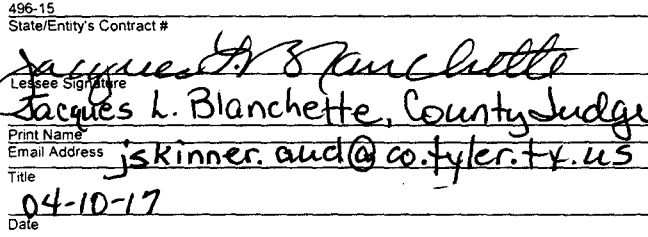 496-15
State/Entity's Contract #
Jacques L. Blanchette
Lessee Signature
Jacques L. Blanchette, County Judge
Print Name
Email Address jskinner.aud@co.tyler.tx.us
Title
04-10-17
Date